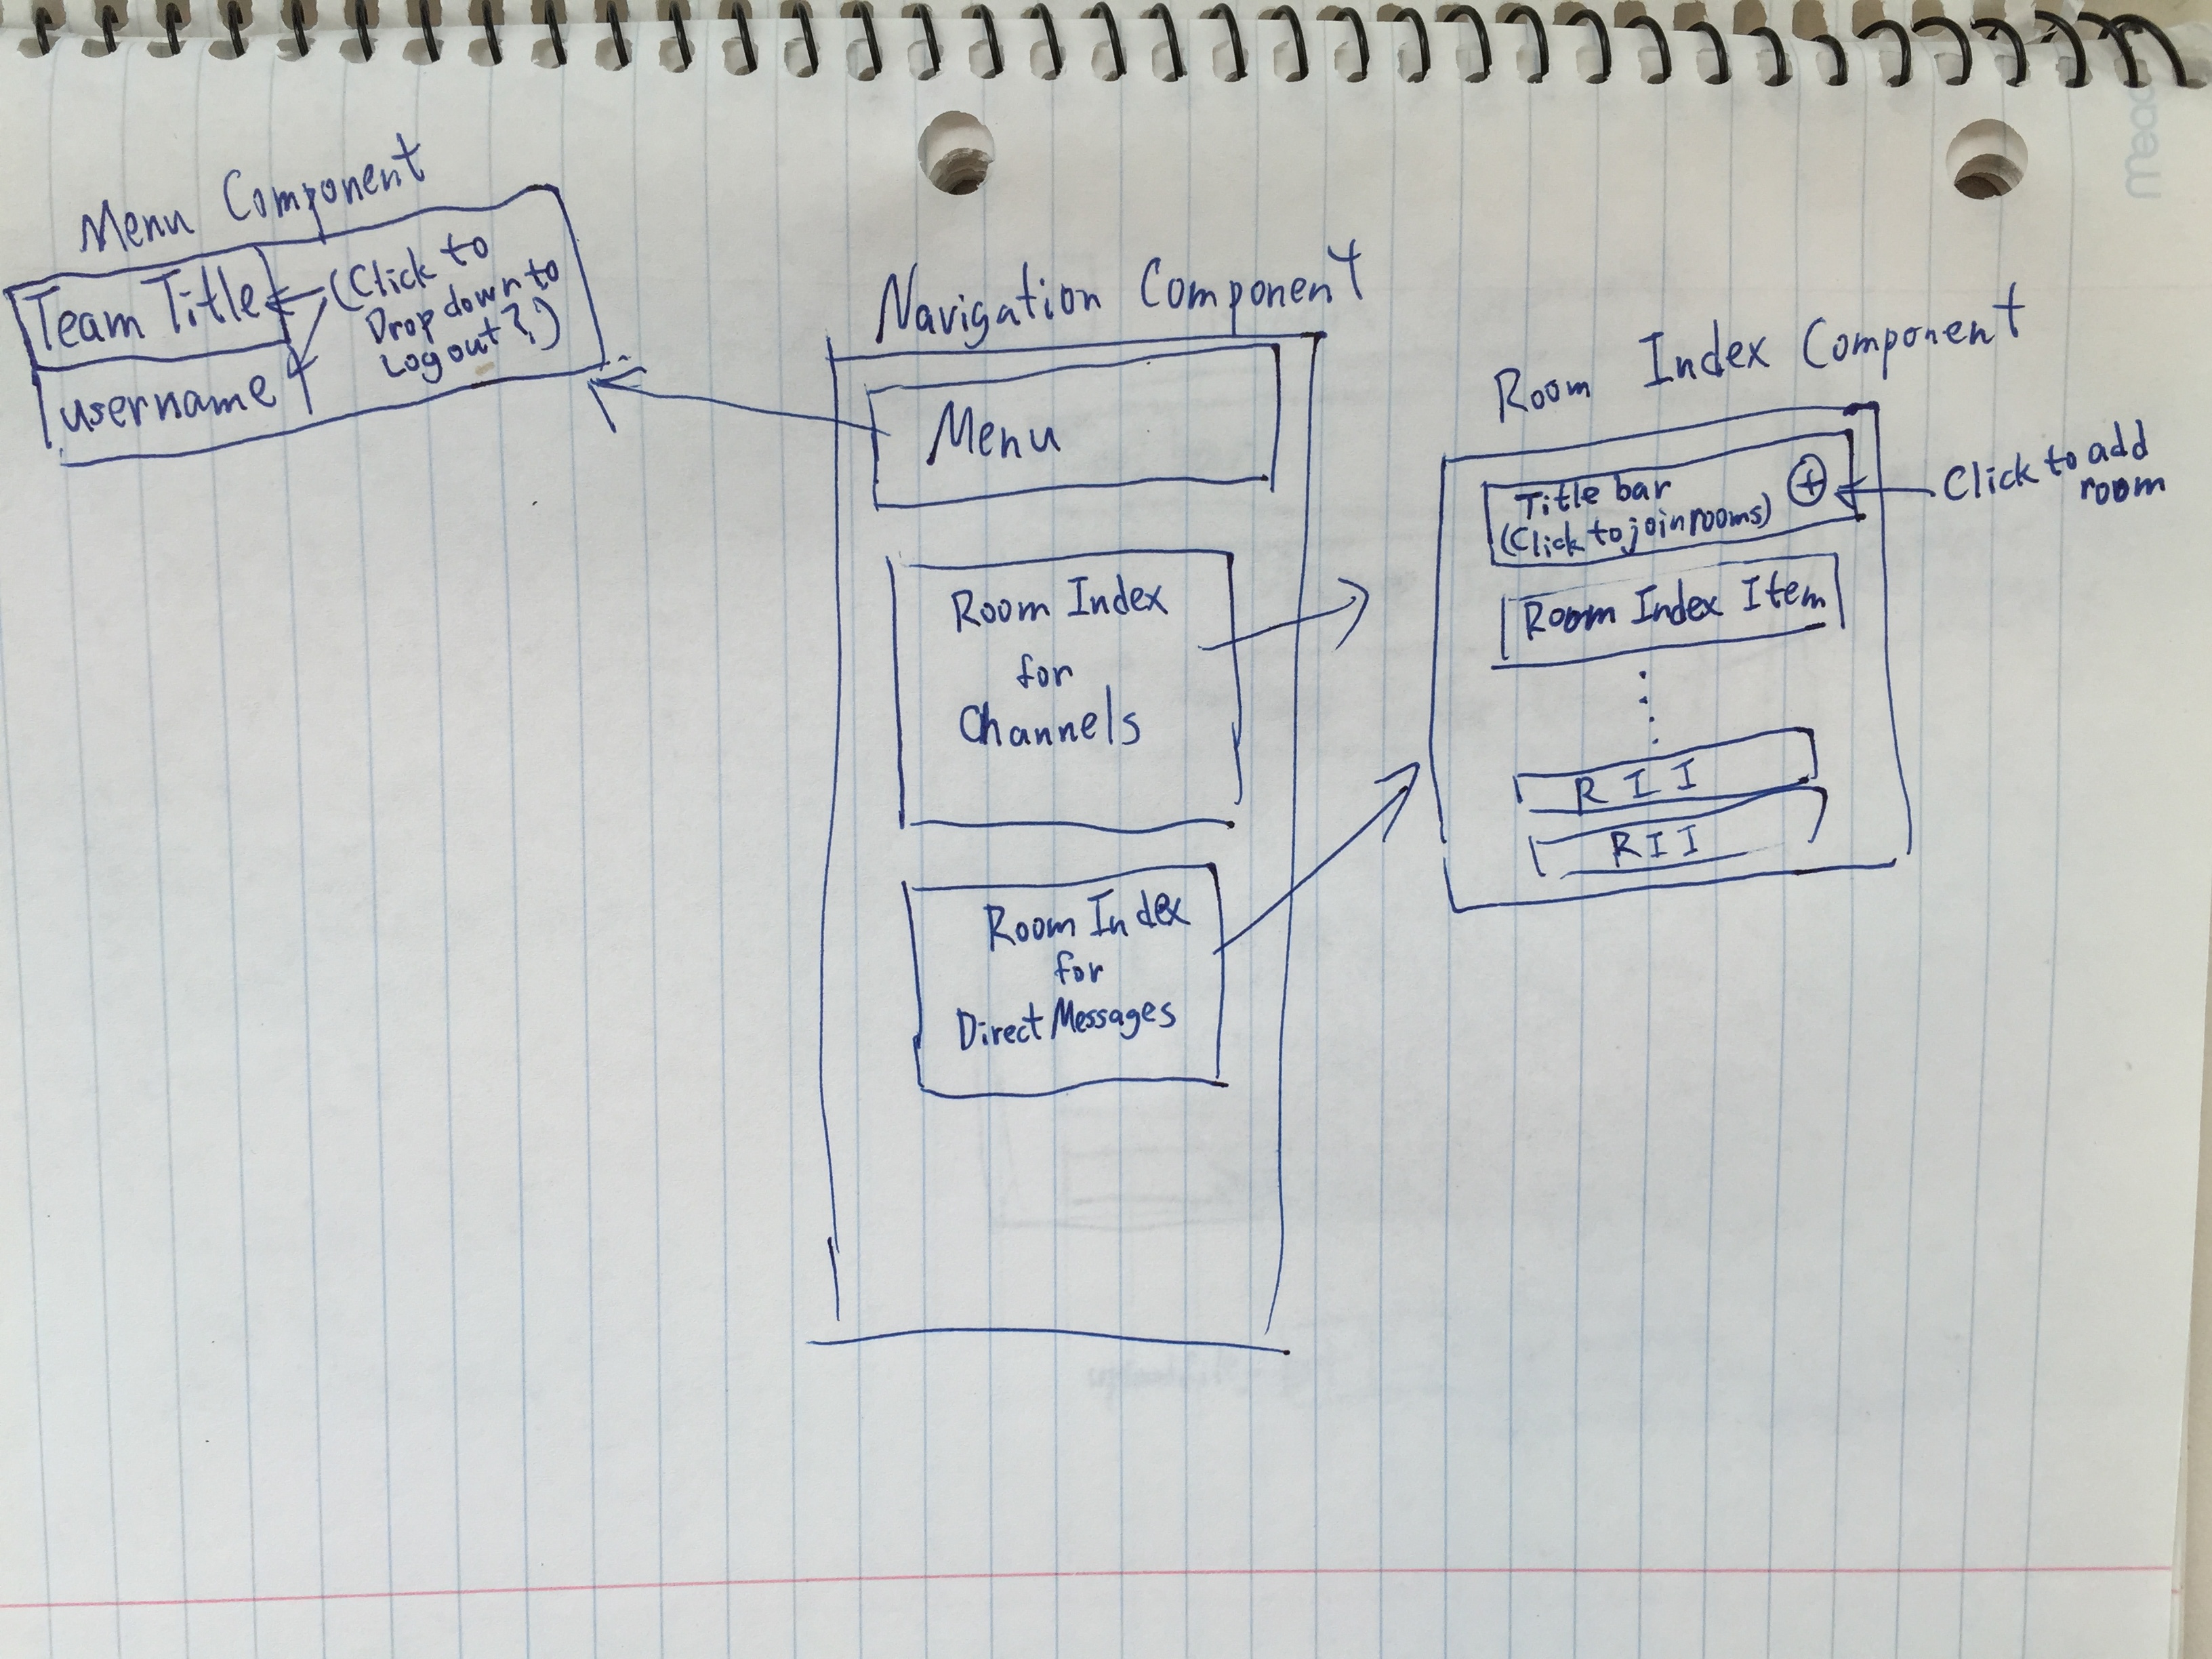 mead
Menu Component
Team Title
(Click to
Dropdown to
Logout?)
username
Navigation Component
Menu
Room Index
for
Channels
Room Index
for
Direct Messages
Room Index Component
Title bar
(Click to join rooms)
+
Click to add
room
Room Index Item
RII
RII